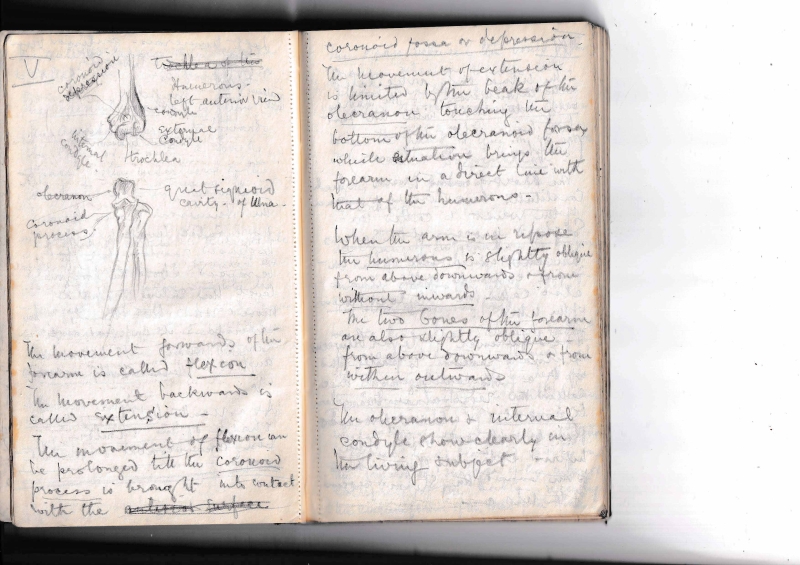 V
coronoid
depression
Trochlea of the
Humerous -
left anterior view
condyle
external
Condyle
internal
Condyle
trochlea
olecranon
great sigmoid
cavity - of Ulna -
coronoid
process
The movement forwards of the
forearm is called flexion
The movement backwards is
called extension -
The movement of flexion can
be prolonged till the coronoid
process is brought into contact
with the anterior surface
coronoid fossa or depression.
The movement of extension
is limited by the beak of the
olecranon touching the
bottom of the olecranoid fossa
which situation brings the
forearm in a direct line with
that of the humerous -
When the arm is in repose
the humerous is slightly oblique
from above downwards & from
without inwards -
The two bones of the forearm
are also slightly oblique
from above downwards & from
within outwards
The olecranon & internal
condyle show clearly in
the living subject